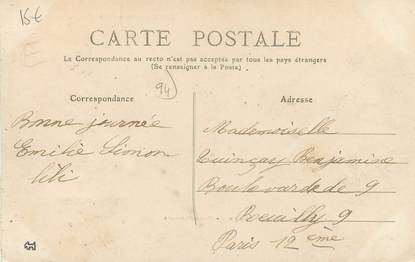 15€
E
CARTE POSTALE
La Correspondance au recto n'est pas acceptée par tous les pays étrangers
(Se renseigner à la Poste)
94
Correspondance
Bonne journée
Emilie Simon
lili
Adresse
Mademoiselle
Quinçay Benjamine
Boulevard de 9
Reuilly 9
Paris 12ème